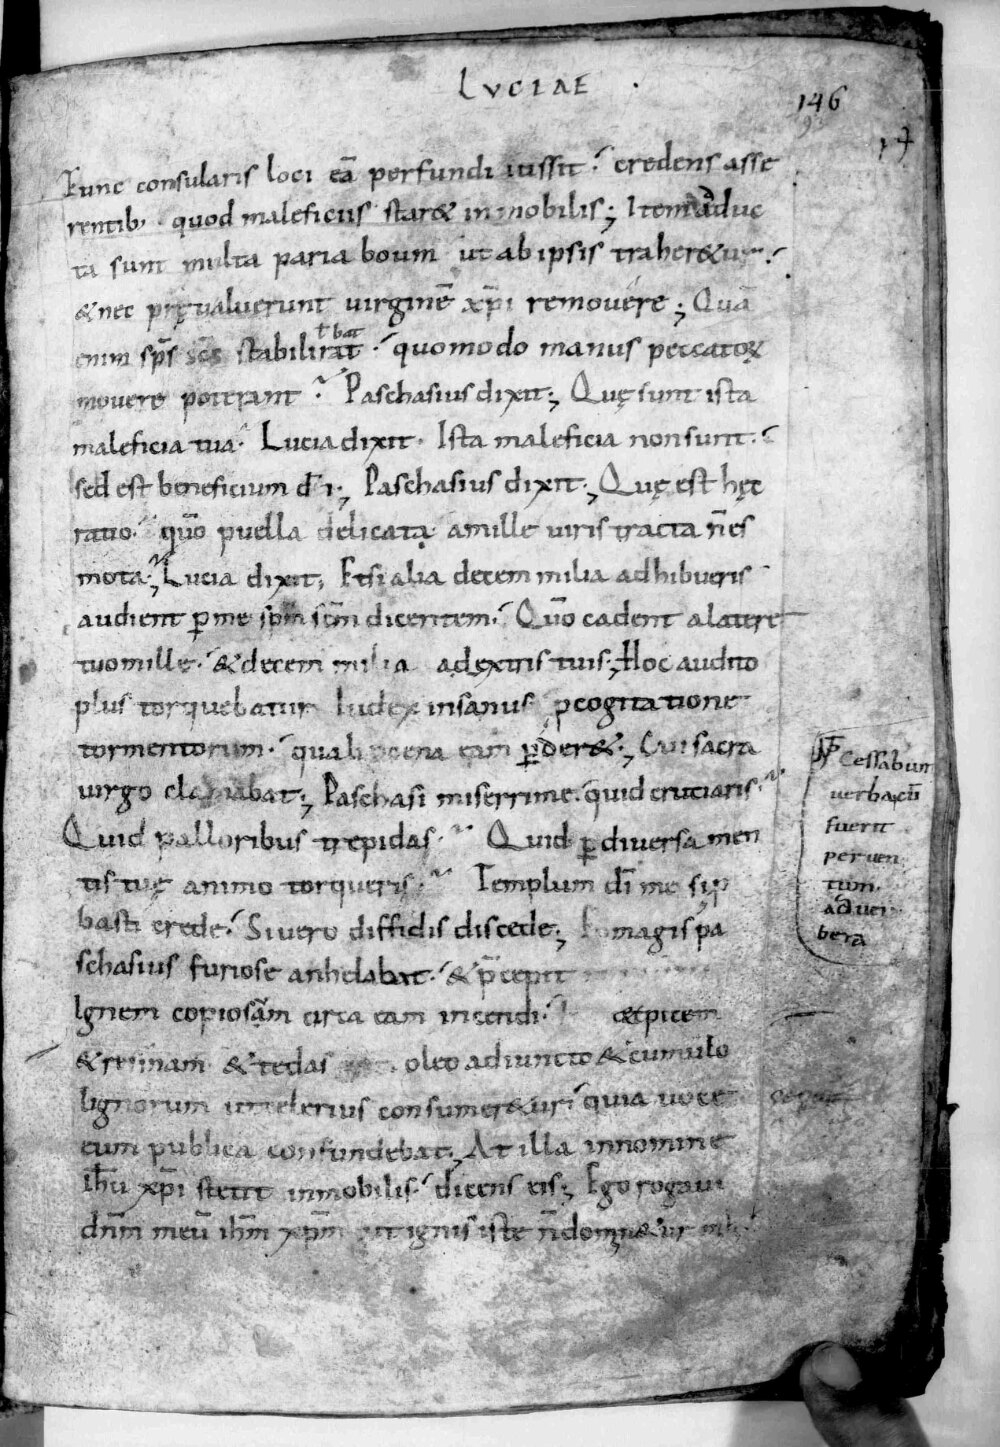 LVCIAE
146
Tunc consularis loci eā perfundi iussit. credens asse
rentib; quod maleficiis star& inmobilis; Item adduc
ta sunt multa paria boum ut ab ipsis traher&ur.
& nec pręualuerunt uirginē xp̄i remouere; Quā
enim sp̄s sc̄s stabilirat ł bat. quomodo manus peccatoꝝ
mouere poterant. Paschasius dixit; Quę sunt ista
maleficia tua. Lucia dixit. Ista maleficia non sunt.
sed est beneficium d̄i; Paschasius dixit; Quę est hęc
ratio. quō puella delicata a mille uiris tracta n̄ es
mota; Lucia dixit; Etsi alia decem milia adhibueris
audient ꝑ me sp̄m sc̄m dicentem. Quō cadent a latere
tuo mille. & decem milia a dextris tuis; Hoc audito
plus torquebatur Iudex insanus ꝓ cogitatione
tormentorum. quali poena eam ꝑder&; Cui sacra
uirgo clamabat; Paschasi miserrime. quid cruciaris.
Quid palloribus trepidas. Quid ꝑ diuersa men
tis tuę animo torqueris. Templum d̄i me si ꝓ
basti crede. Si uero diffidis discede; magis pa
schasius furiose anhelabat. & p̄cepit
Ignem copiosam circa eam incendi. & picem
& resinam & tedas oleo adiuncto & cumulo
lignorum ut celerius consumer&ur. quia uoce
eum publica confundebat; At illa in nomine
ih̄u xp̄i stetit inmobilis. dicens eis; Ego rogaui
dn̄m meū ih̄m xp̄m ut ignis iste n̄ domin&ur mihi
Cessabunt
uerba cū
fuerit
peruen
tum
ad uer
bera